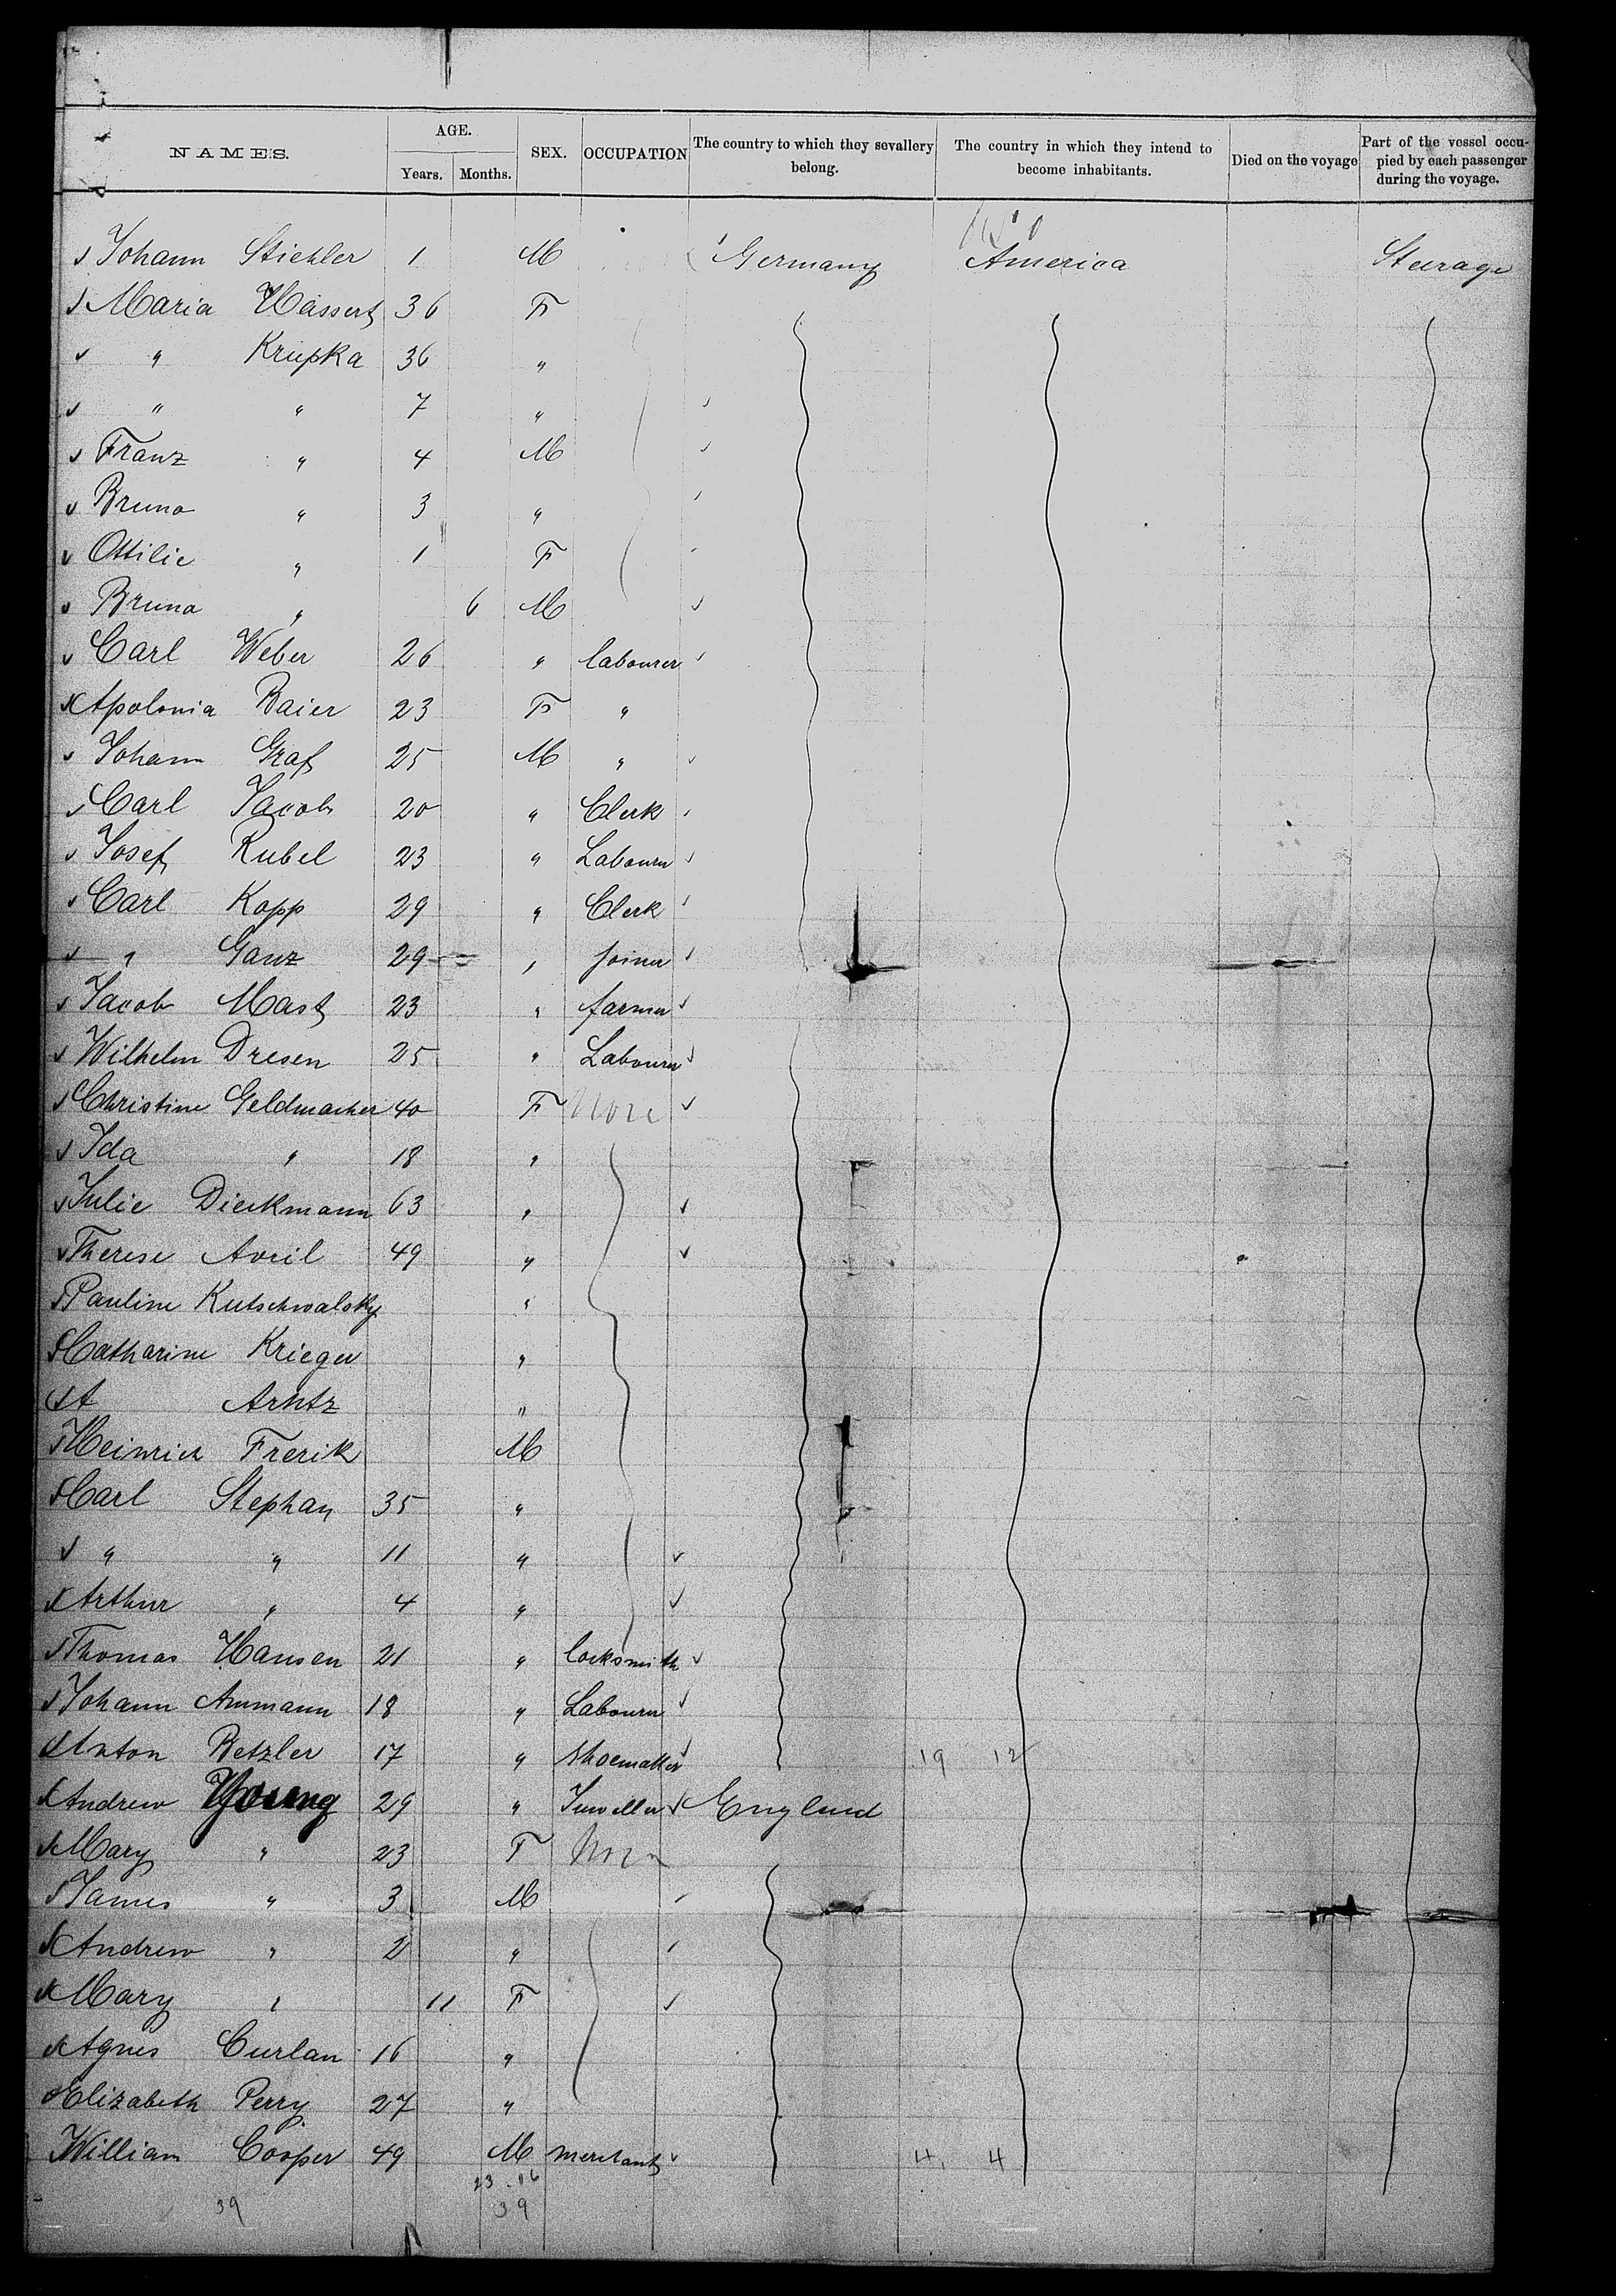 NAMES. AGE. SEX. OCCUPATION The country to which they sevallery belong. The country in which they intend to become inhabitants. Died on the voyage Part of the vessel occupied by each passenger during the voyage.
Years. Months.
Johann Stiehler 1 M Germany America Steerage
Maria Hassert 36 F
" Krupka 36 "
" " 7 "
Franz " 4 M
Bruno " 3 "
Ottilie " 1 F
Bruno " 6 M
Carl Weber 26 " labourer
Apolonia Baier 23 F "
Johann Graf 25 M "
Carl Jacob 20 " Clerk
Josef Rubel 23 " Labourer
Carl Kopp 29 " Clerk
" Ganz 29 " joiner
Jacob Mast 23 " farmer
Wilhelm Dresen 25 " Labourer
Christine Geldmacher 40 F None
Ida " 18 "
Julie Dieckmann 63 "
Therese Avril 49 "
Pauline Kutschwalsky "
Catharine Krieger "
A Arntz "
Heinrich Frerik M
Carl Stephan 35 "
" " 11 "
Arthur " 4 "
Thomas Hansen 21 " locksmith
Johann Ammann 18 " Labourer
Anton Betzler 17 " shoemaker 19 12
Andrew Young 29 " Juweller England
Mary " 23 F None
James " 3 M
Andrew " 2 "
Mary " 11 F
Agnes Curlan 16 "
Elizabeth Perry 27 "
William Cooper 49 M merchant 4 4
23.16
39 39